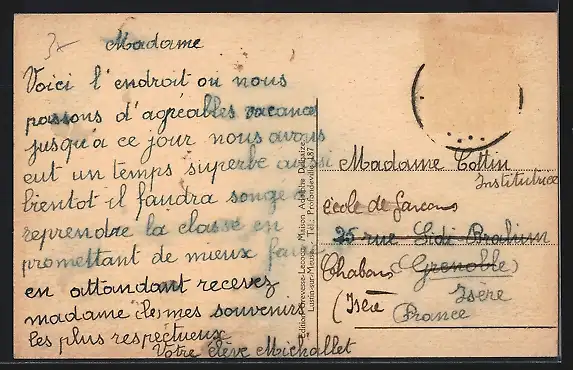 Madame
Voici l'endroit ou nous
passons d'agréables vacances
jusqu'a ce jour nous avons
eut un temps superbe aussi
bientot il faudra songer a
reprendre la classe en
promettant de mieux faire
en attandant recevez
madame mes souvenirs
les plus respectueux
Votre élève Michallet
Edition Grevesse-Lecocq, Maison Adolphe Delbaize
Lustin-sur-Meuse. - Tél.: Profondeville 187
Madame Cottin
Institutrice
école de Garcons
25 rue Sidi Brahim
(Grenoble)
(Isère
Isère
France